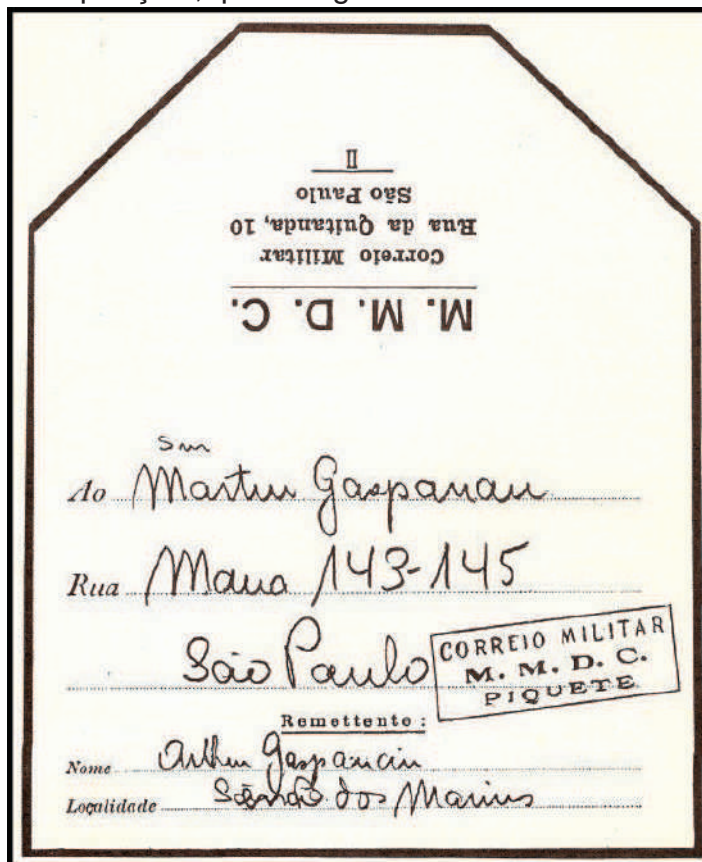 M. M. D. C.
Correio Militar
Rua da Quitanda, 10
São Paulo
II
Snr
Ao Martin Gasparian
Rua Maua 143-145
São Paulo
CORREIO MILITAR
M. M. D. C.
PIQUETE
Remettente :
Nome Arthur Gasparian
Localidade dos Marins